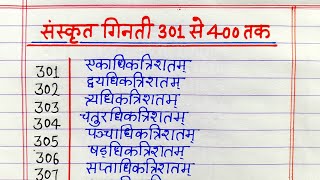 संस्कृत गिनती 301 से 400 तक
301 एकाधिकत्रिशतम्
302 द्वयधिकत्रिशतम्
303 त्र्यधिकत्रिशतम्
304 चतुरधिकत्रिशतम्
305 पञ्चाधिकत्रिशतम्
306 षडधिकत्रिशतम्
307 सप्ताधिकत्रिशतम्